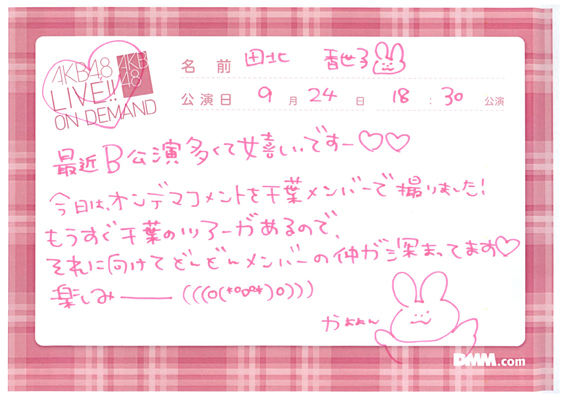 AKB48
LIVE!!
ON DEMAND
AKB
48
名前 田北 香世子
公演日 9月24日 18:30公演
最近B公演多くて嬉しいですー♡♡
今日は、オンデマコメントを千葉メンバーで撮りました!
もうすぐ千葉のツアーがあるので、
それに向けてどんどんメンバーの仲が深まってます♡
楽しみ―― (((o(*°▽°*)o)))
かよよん
DMM.com